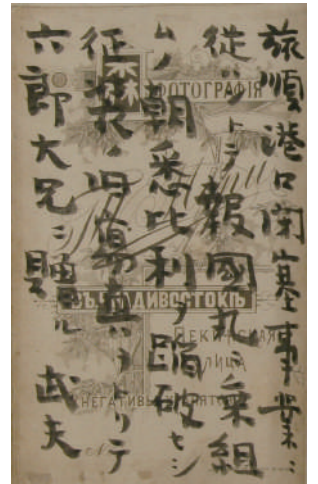 旅順港口閉塞事業ニ
従ハントテ報國丸ニ乗組
ムノ朝悉比利ヲ蹈破セシ
征衣ノ旧寫真ヲトリテ
六郎大兄ニ贈ル 武夫
ФОТОГРАФІЯ
ВЪ ВЛАДИВОСТОКѢ
ПЕКИНСКАЯ
УЛИЦА
НЕГАТИВЫ